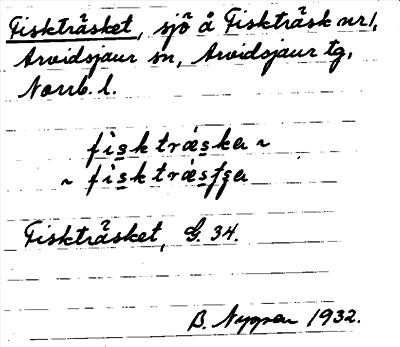 Fiskträsket, sjö å Fiskträsk nr 1,
Arvidsjaur sn, Arvidsjaur tg,
Norrb. l.
fìsktrǽska ~
~ fìsktrǽsʃɡa
Fiskträsket, G. 34.
B. Nygren 1932.